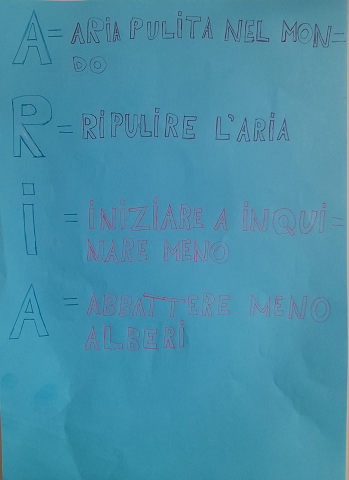 A = ARIA PULITA NEL MON=
DO
R = RIPULIRE L'ARIA
i = iNiZiARE A iNQUi=
NARE MENO
A = ABBATTERE MENO
ALBERi